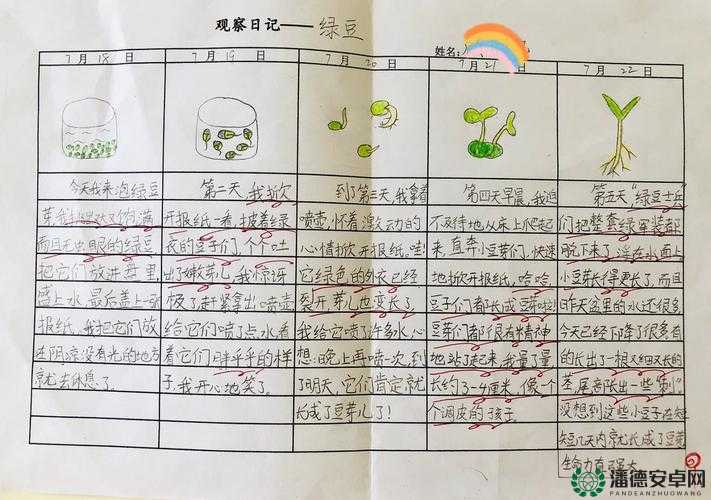 观察日记——绿豆
姓名:
7月18日
7月19日
7月20日
7月21日
7月22日
今天我来泡绿豆
芽,我
满
而且无虫眼的绿豆
把它们放进盘里
盛上水,最后盖上一张
报纸,我把它们放
在阴凉没有光的地方
就去休息了。
第二天,我掀
开报纸一看,披着绿
衣的豆子们个个吐
出了嫩芽儿,我惊讶
极了赶紧拿出喷壶
给它们喷了点水,看
着它们胖乎乎的样
子,我开心地笑了。
到了第三天,我拿着
喷壶,怀着激动的
心情掀开报纸,哇!
它绿色的外衣已经
裂开芽儿也变长了,
我给它喷了许多水,心
想:晚上再喷一次,到
了明天,它们肯定就
长成了豆芽儿了!
第四天早晨,我迫
不及待地从床上爬起
来,直奔小豆芽们,快速
地掀开报纸,哈哈
豆子们都长成豆芽啦!
豆芽们都很有精神
地站了起来,我量了量,
长约3-4厘米,像一个
个调皮的孩子。
第五天“绿豆士兵”
们把整套绿军装都
脱下来了,浮在水面上
小豆芽长得更长了,而且
昨天盆里的水还很多
今天已经下降了很多有
的长出了一根又细又长的
茎尾部长出一些“刺”
没想到这些小豆子在短
短几天内就长成了豆芽
生命力真强大
潘德安卓网
PANDEANZHUOWANG